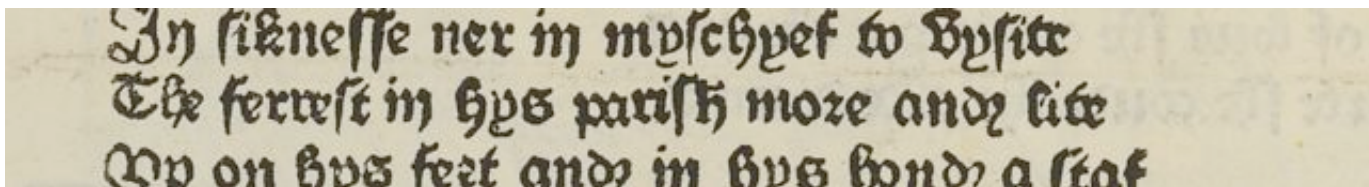 In ſikneſſe ner in myſchyef to vyſite
The ferreſt in hys pariſh more and lite
Vp on hys feet and in hys hond a ſtaf